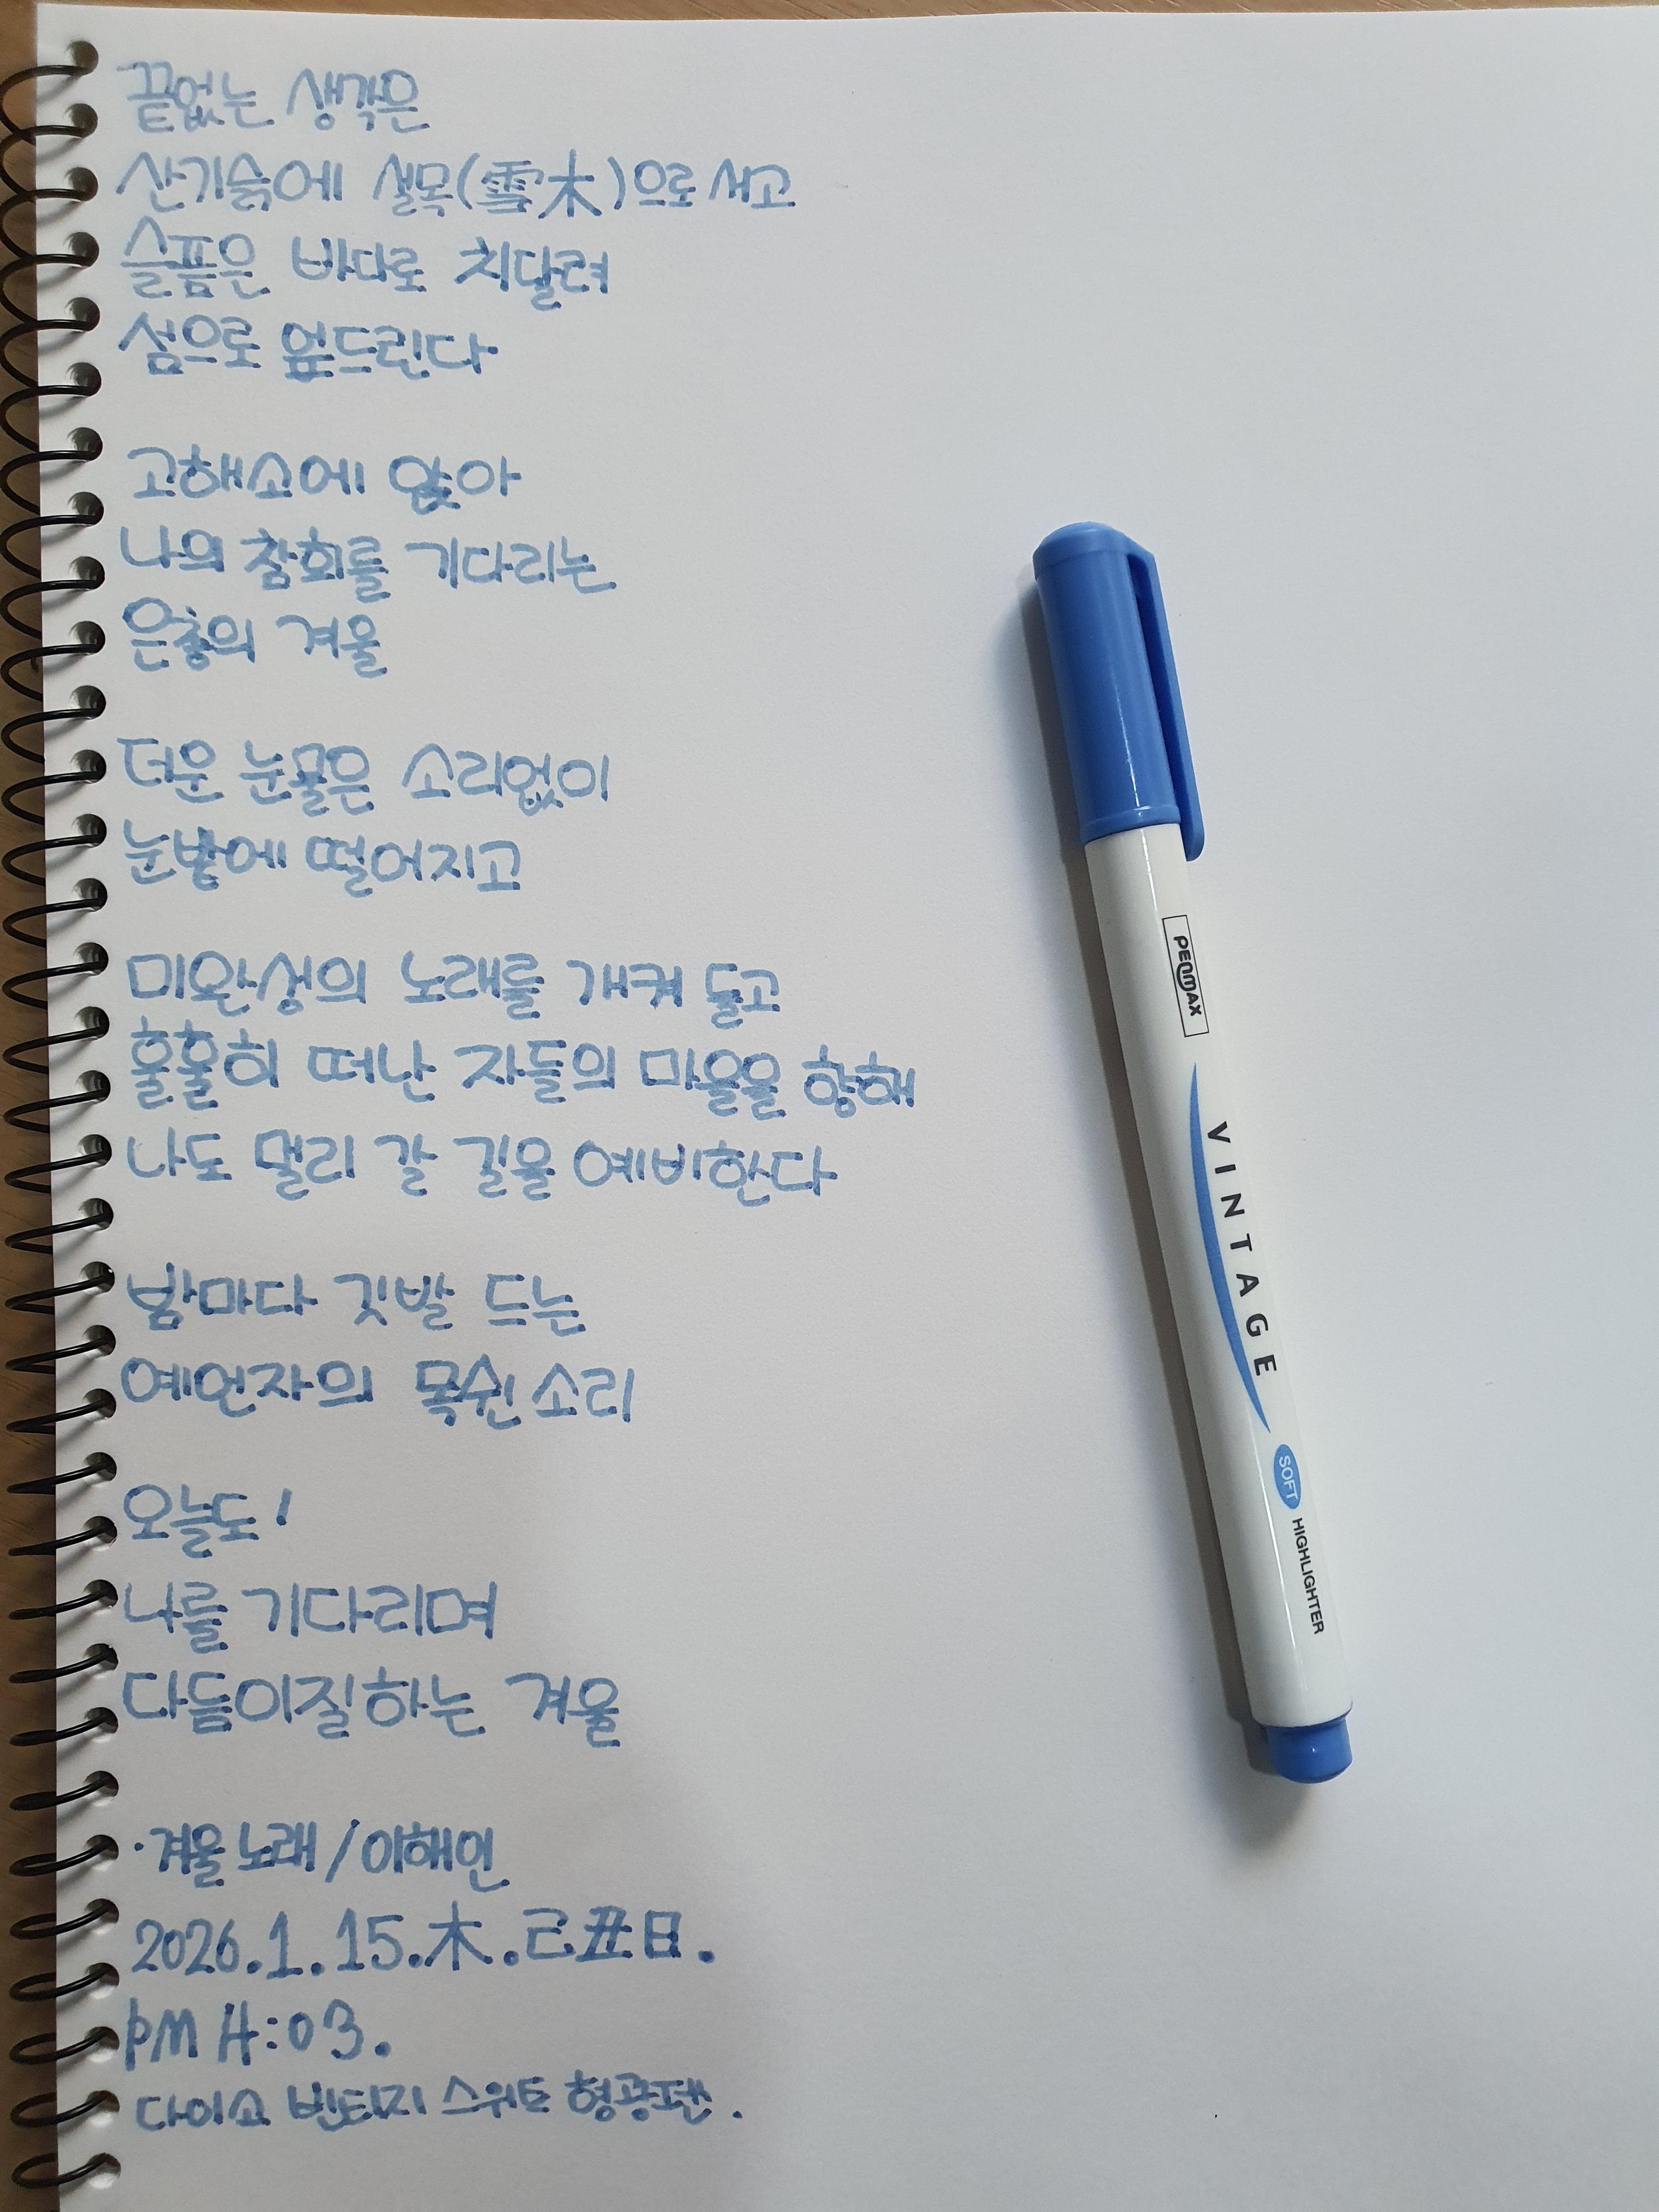 끝없는 생각은
산기슭에 설목(雪木)으로 서고
슬픔은 바다로 치달려
섬으로 엎드린다
고해소에 앉아
나의 참회를 기다리는
은총의 겨울
더운 눈물은 소리없이
눈밭에 떨어지고
미완성의 노래를 개켜 들고
훌훌히 떠난 자들의 마을을 향해
나도 멀리 갈 길을 예비한다
밤마다 깃발 드는
예언자의 목쉰 소리
오늘도!
나를 기다리며
다듬이질하는 겨울
·겨울 노래/이해인
2026.1.15.木.己丑日.
PM 4:03.
다이소 빈티지 스위트 형광펜.
PENMAX
VINTAGE
SOFT HIGHLIGHTER